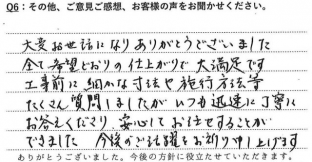 Q6：その他、ご意見ご感想、お客様の声をお聞かせください。
大変お世話になりありがとうございました
全て希望どおりの仕上がりで大満足です
工事前に細かな寸法や施行方法等
たくさん質問しましたがいつも迅速に丁寧に
お答えくださり、安心してお任せすることが
できました 今後のご活躍をお祈り申し上げます
ありがとうございました。今後の方針に役立たせていただきます。